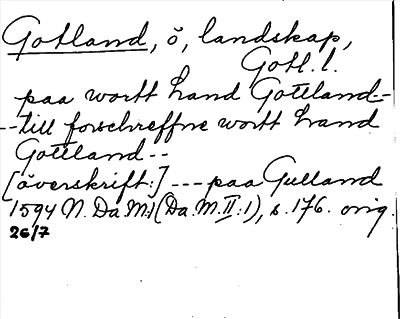 Gotland, ö, landskap,
Gotl. l.
paa wortt Land Gottland--
--till forschreffne wortt Land
Gottland--
[överskrift:] --- paa Gulland
1594 N. Da M:1 (Da. M. II:1), s. 176. orig.
26/7